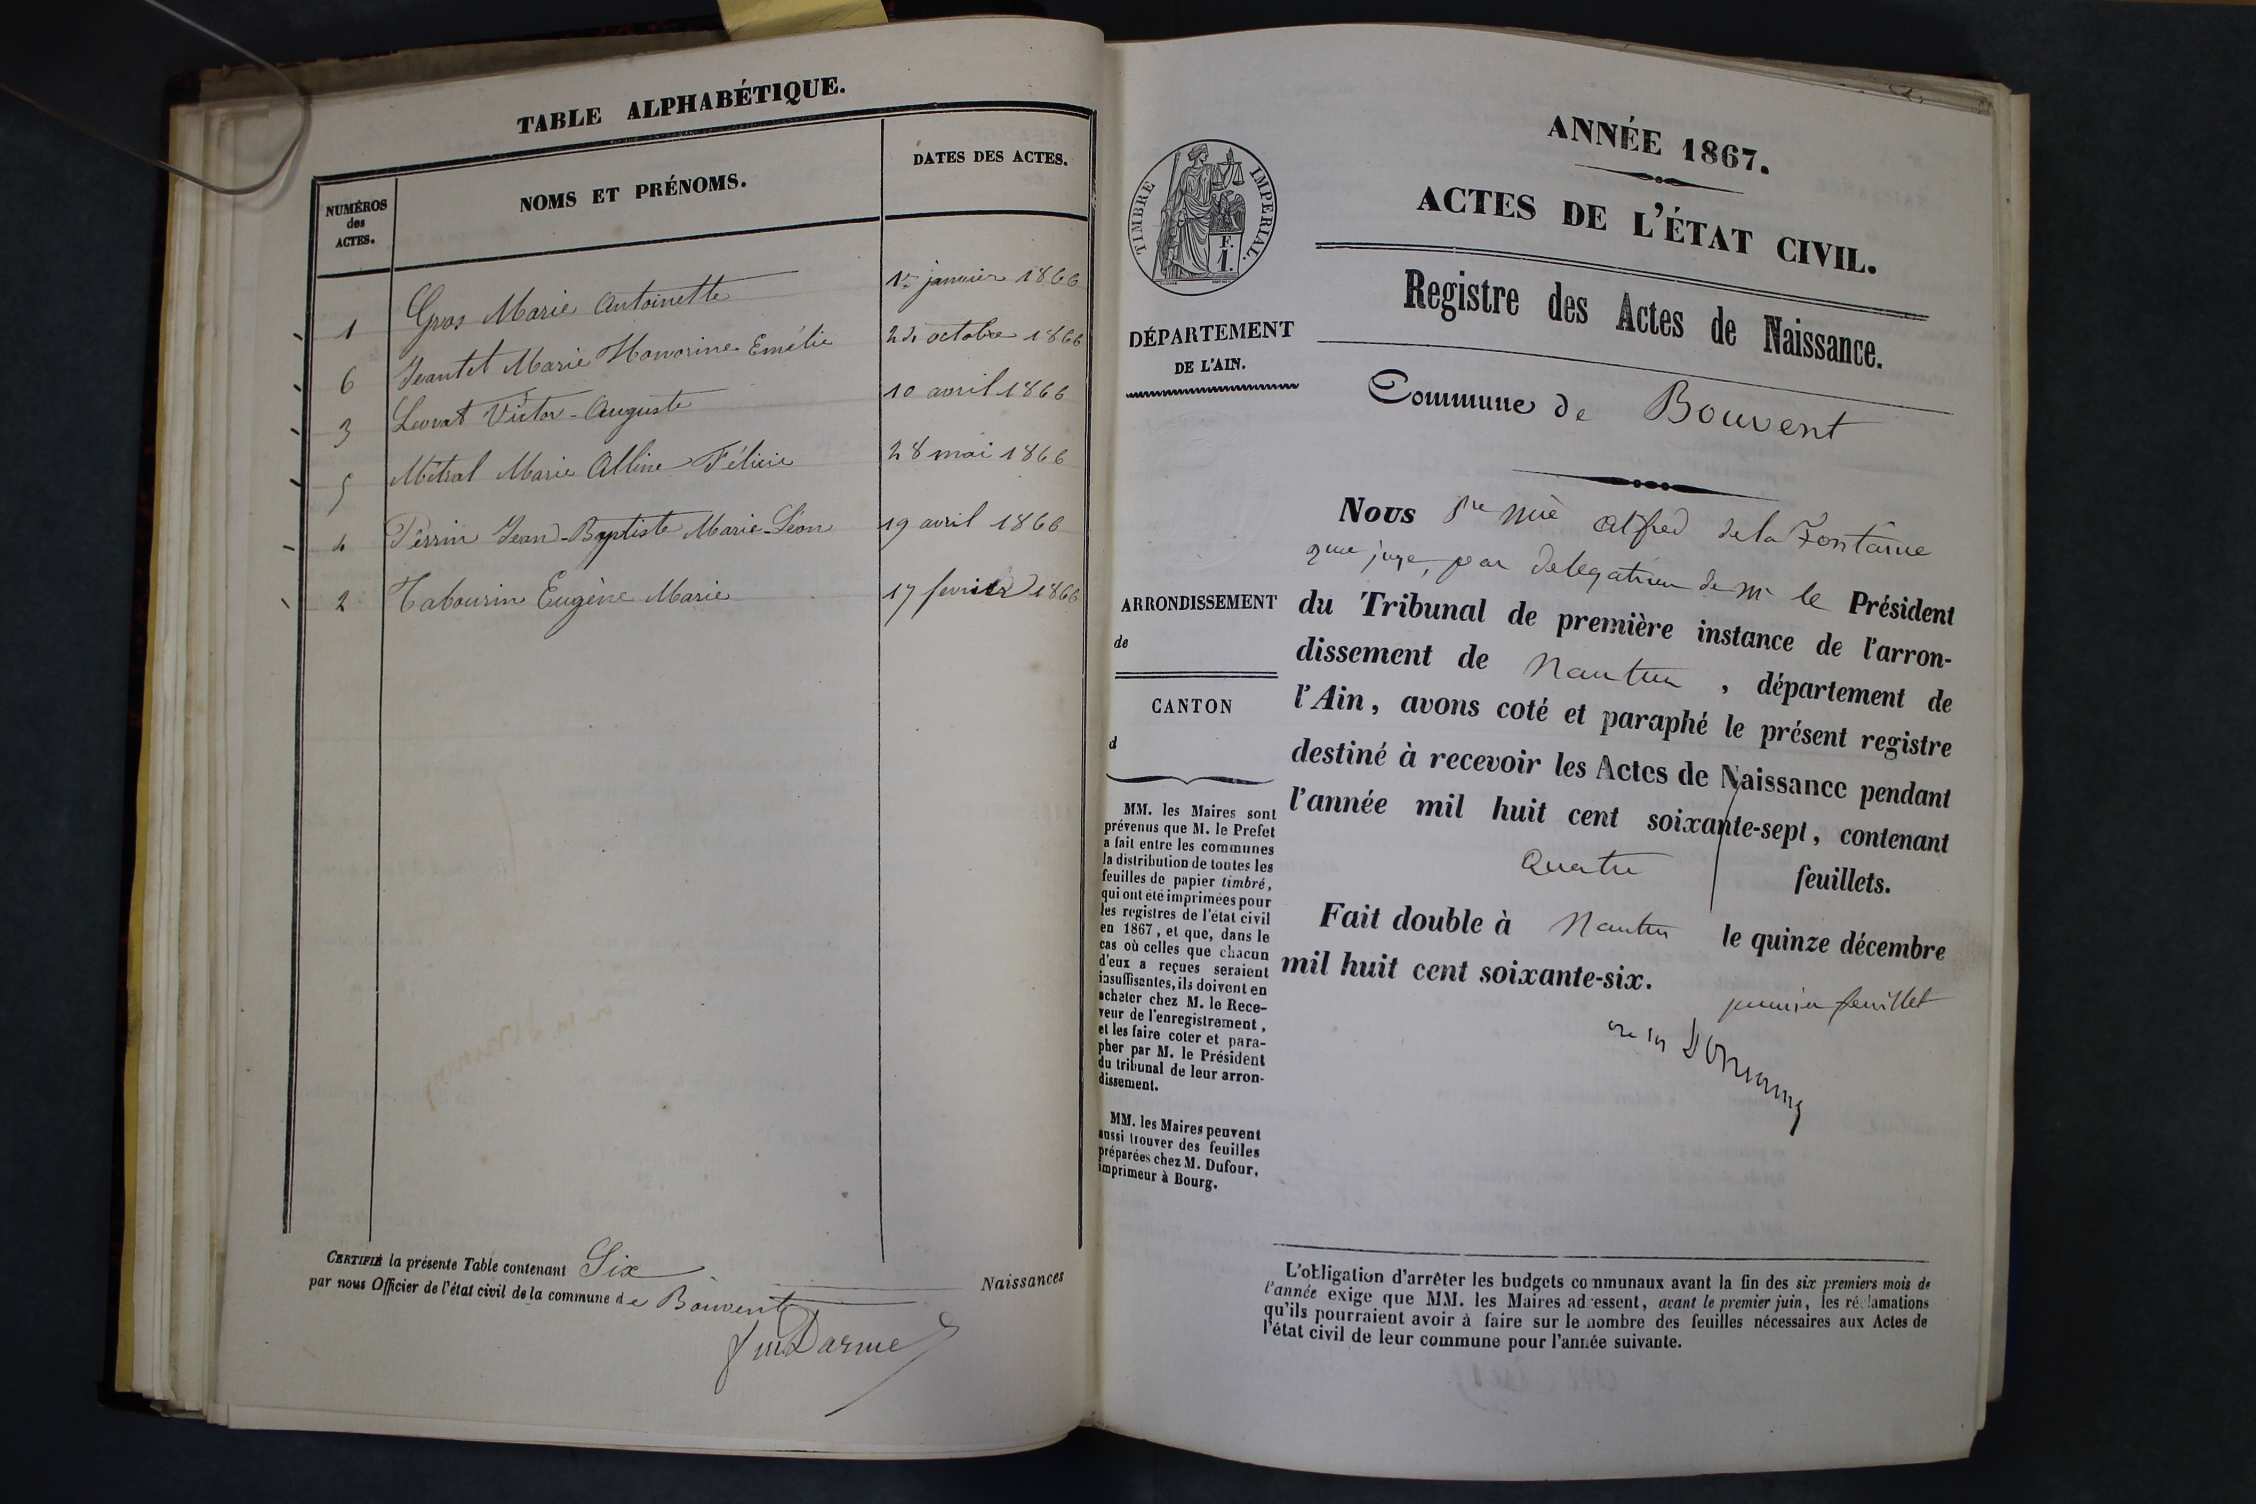 TABLE ALPHABÉTIQUE.
NUMÉROS
des
ACTES.
NOMS ET PRÉNOMS.
DATES DES ACTES.
1 Gros Marie Antoinette 1er janvier 1866
6 Jeantet Marie Honorine Emélie octobre 1866
3 Levrat Victor-Auguste 10 avril 1866
5 Métral Marie Alline Félicie 28 mai 1866
4 Perrin Jean-Baptiste Marie-Léon 19 avril 1866
2 Tabourin Eugène Marie 17 fevrier 1866
CERTIFIÉ la présente Table contenant Six Naissances
par nous Officier de l'état civil de la commune de Bouvent
Darme
TIMBRE IMPERIAL.
F.
1.
DÉPARTEMENT
DE L'AIN.
ARRONDISSEMENT
de
CANTON
d
MM. les Maires sont
prévenus que M. le Prefet
a fait entre les communes
la distribution de toutes les
feuilles de papier timbré,
qui ont été imprimées pour
les registres de l'état civil
en 1867, et que, dans le
cas où celles que chacun
d'eux a reçues seraient
insuffisantes, ils doivent en
achater chez M. le Rece-
veur de l'enregistrement,
et les faire coter et para-
pher par M. le Président
du tribunal de leur arron-
dissement.
MM. les Maires peuvent
aussi trouver des feuilles
préparées chez M. Dufour,
imprimeur à Bourg.
ANNÉE 1867.
ACTES DE L'ÉTAT CIVIL.
Registre des Actes de Naissance.
Commune de Bouvent
Nous Alfred de la Fontaine
juge, par delegation de Mr le Président
du Tribunal de première instance de l'arron-
dissement de Nantua, département de
l'Ain, avons coté et paraphé le présent registre
destiné à recevoir les Actes de Naissance pendant
l'année mil huit cent soixante-sept, contenant
quatre feuillets.
Fait double à Nantua le quinze décembre
mil huit cent soixante-six.
premier feuillet
L'obligation d'arrêter les budgets communaux avant la fin des six premiers mois de
l'année exige que MM. les Maires adressent, avant le premier juin, les réclamations
qu'ils pourraient avoir à faire sur le nombre des feuilles nécessaires aux Actes de
l'état civil de leur commune pour l'année suivante.